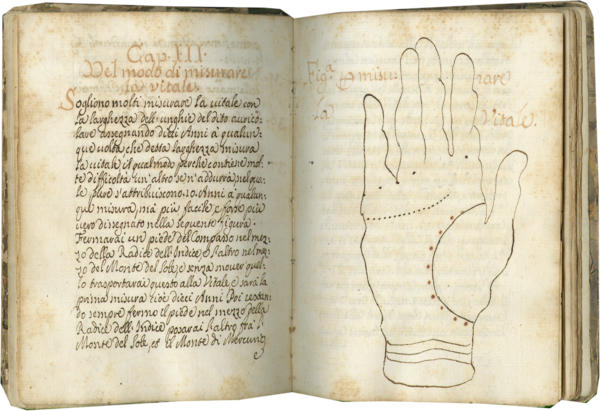 Cap. III.
Del modo di misurare
la vitale.
Sogliono molti misurare la vitale con
la larghezza dell'unghie del dito aurico-
lare assegnando dieci Anni à qualun-
que volta che detta larghezza misura
la vitale il qual modo perche contiene mol-
te difficoltà un'altro se n'addurrà nel qua-
le pure s'attribuiscono 10. Anni à qualun-
que misura, mà più facile, e forse più
vero disegnato nella seguente figura.
Fermarai un piede del Compasso nel mez-
zo della Radice dell'Indice e l'altro nel mez-
zo del Monte del Sole, e senza mover quel-
lo trasportarai questo alla Vitale e sarà la
prima misura cioè dieci Anni Poi
do sempre fermo il piede nel mezzo della
Radice dell'Indice posarai l'altro frà l
Monte del Sole, et il Monte di Mercurio
e
Figa. misurare
la Vitale.